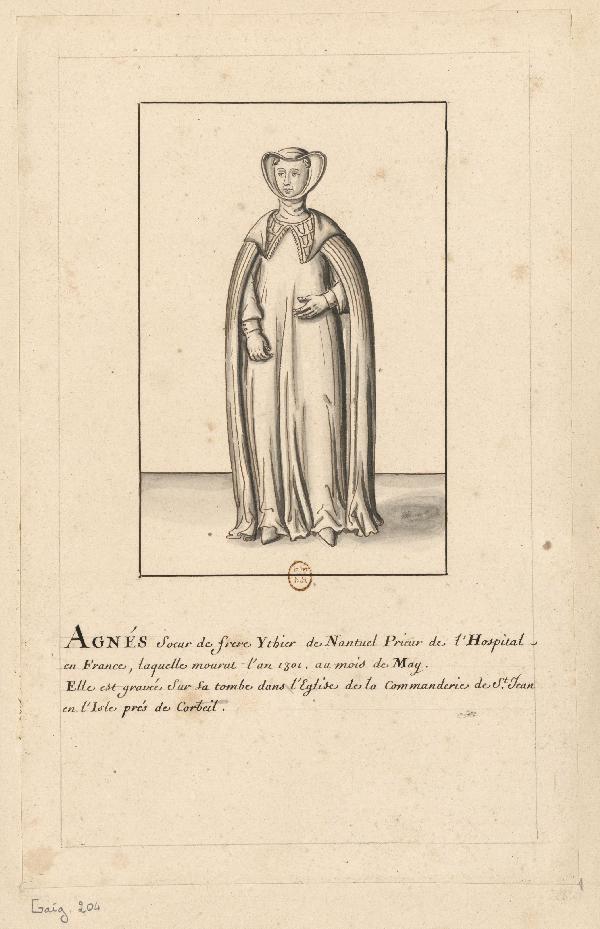 AGNÉS Soeur de frere Ythier de Nantuel Prieur de l'Hospital
en France, laquelle mourut l'an 1301. au mois de May.
Elle est gravée sur sa tombe dans l'Eglise de la Commanderie de St. Jean
en l'Isle prés de Corbeil.
Gaig. 204